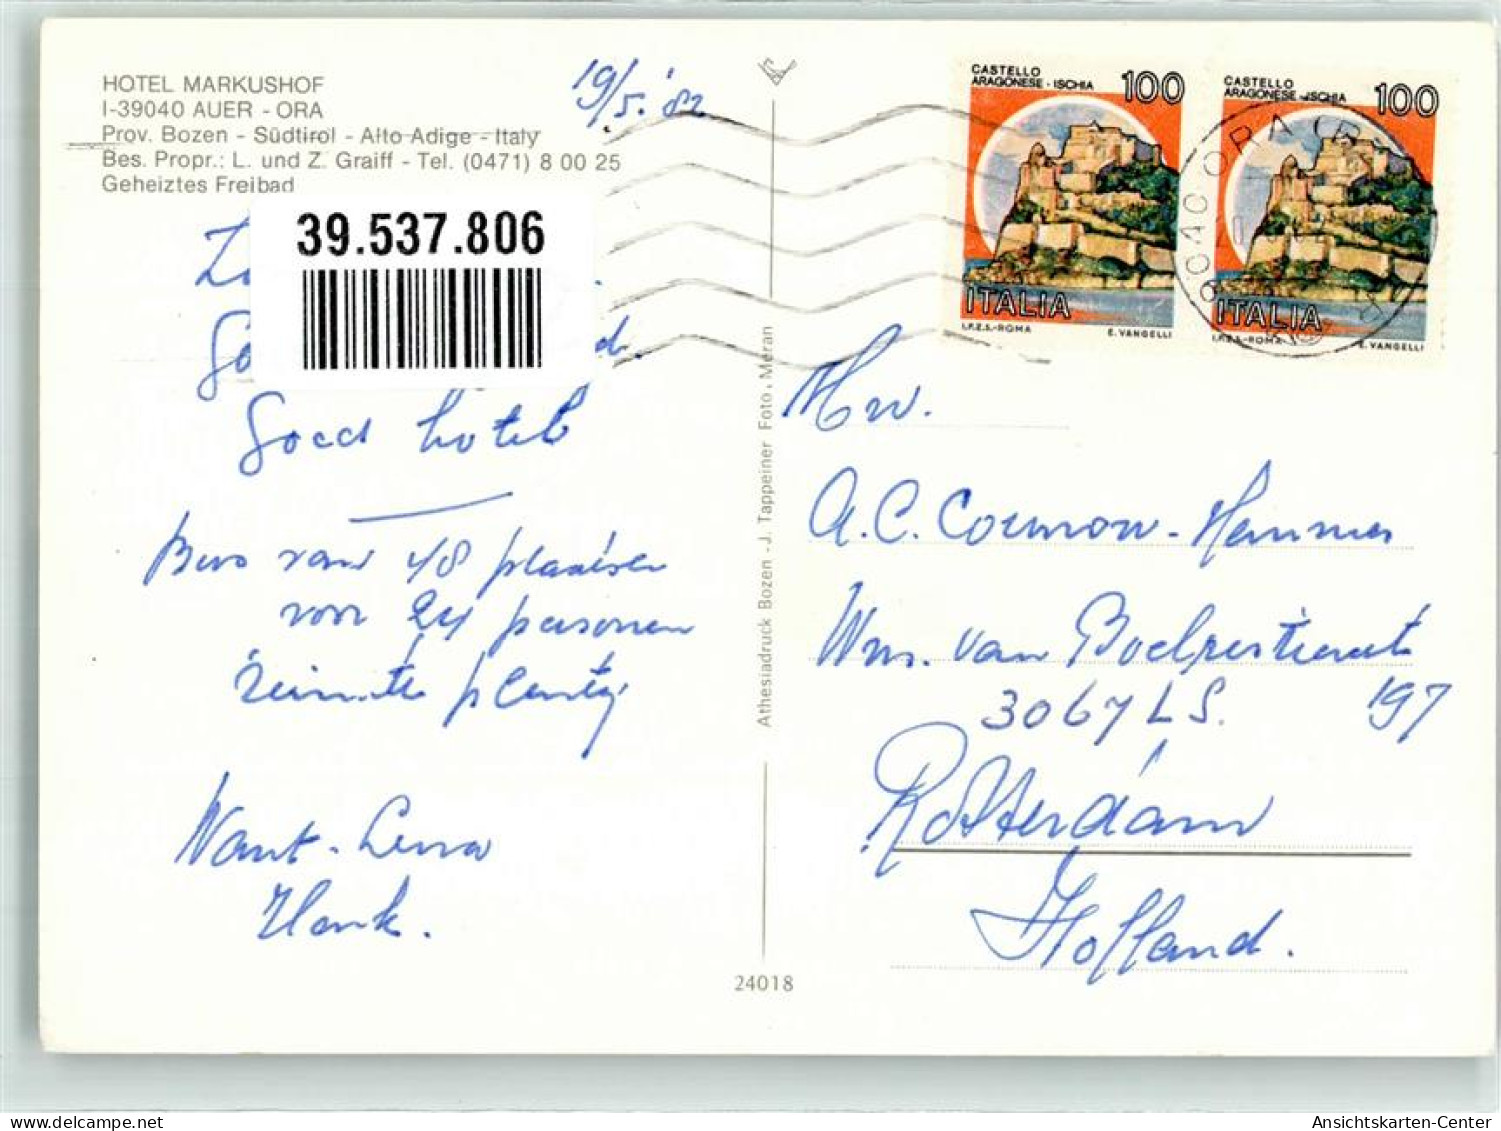 HOTEL MARKUSHOF
I-39040 AUER - ORA
Prov. Bozen - Südtirol - Alto Adige - Italy
Bes. Propr.: L. und Z. Graiff - Tel. (0471) 8 00 25
Geheiztes Freibad
19/5.'82
39.537.806
Goed hotel
Bus van 48 plaatsen
voor 24 personen
ruimte plenty
Want-Lena
Henk.
Athesiadruck Bozen - J. Tappeiner Foto, Meran
24018
CASTELLO
ARAGONESE - ISCHIA 100
ITALIA
I.P.Z.S.-ROMA E. VANGELLI
CASTELLO
ARAGONESE - ISCHIA 100
ITALIA
I.P.Z.S.-ROMA E. VANGELLI
39040 ORA (BZ)
Mw.
A.C. Coumou-Hemmes
Wm. van Boelrestraat
3067 LS. 197
Rotterdam
Holland.
delcampe.net
Ansichtskarten-Center